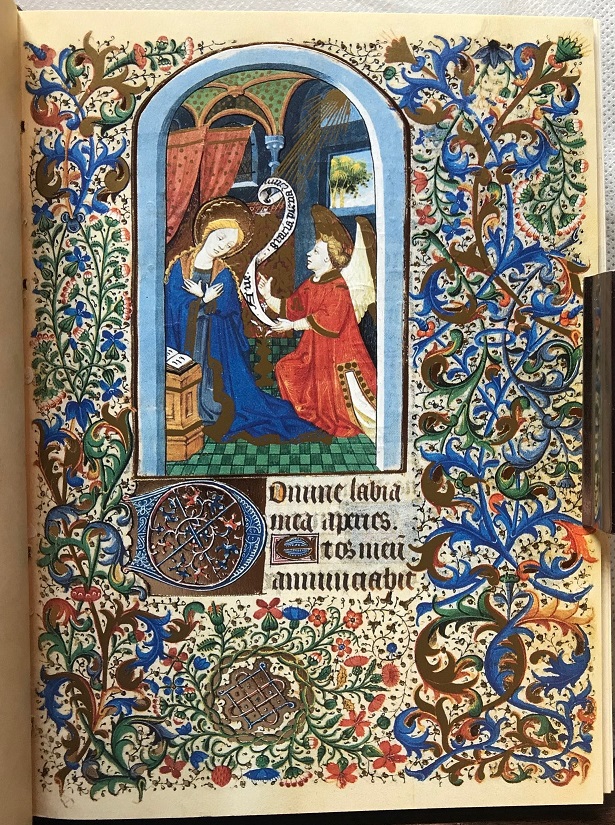 Aue gracia plena
DOmine labia
mea aperies.
Et os meū
annunciabit